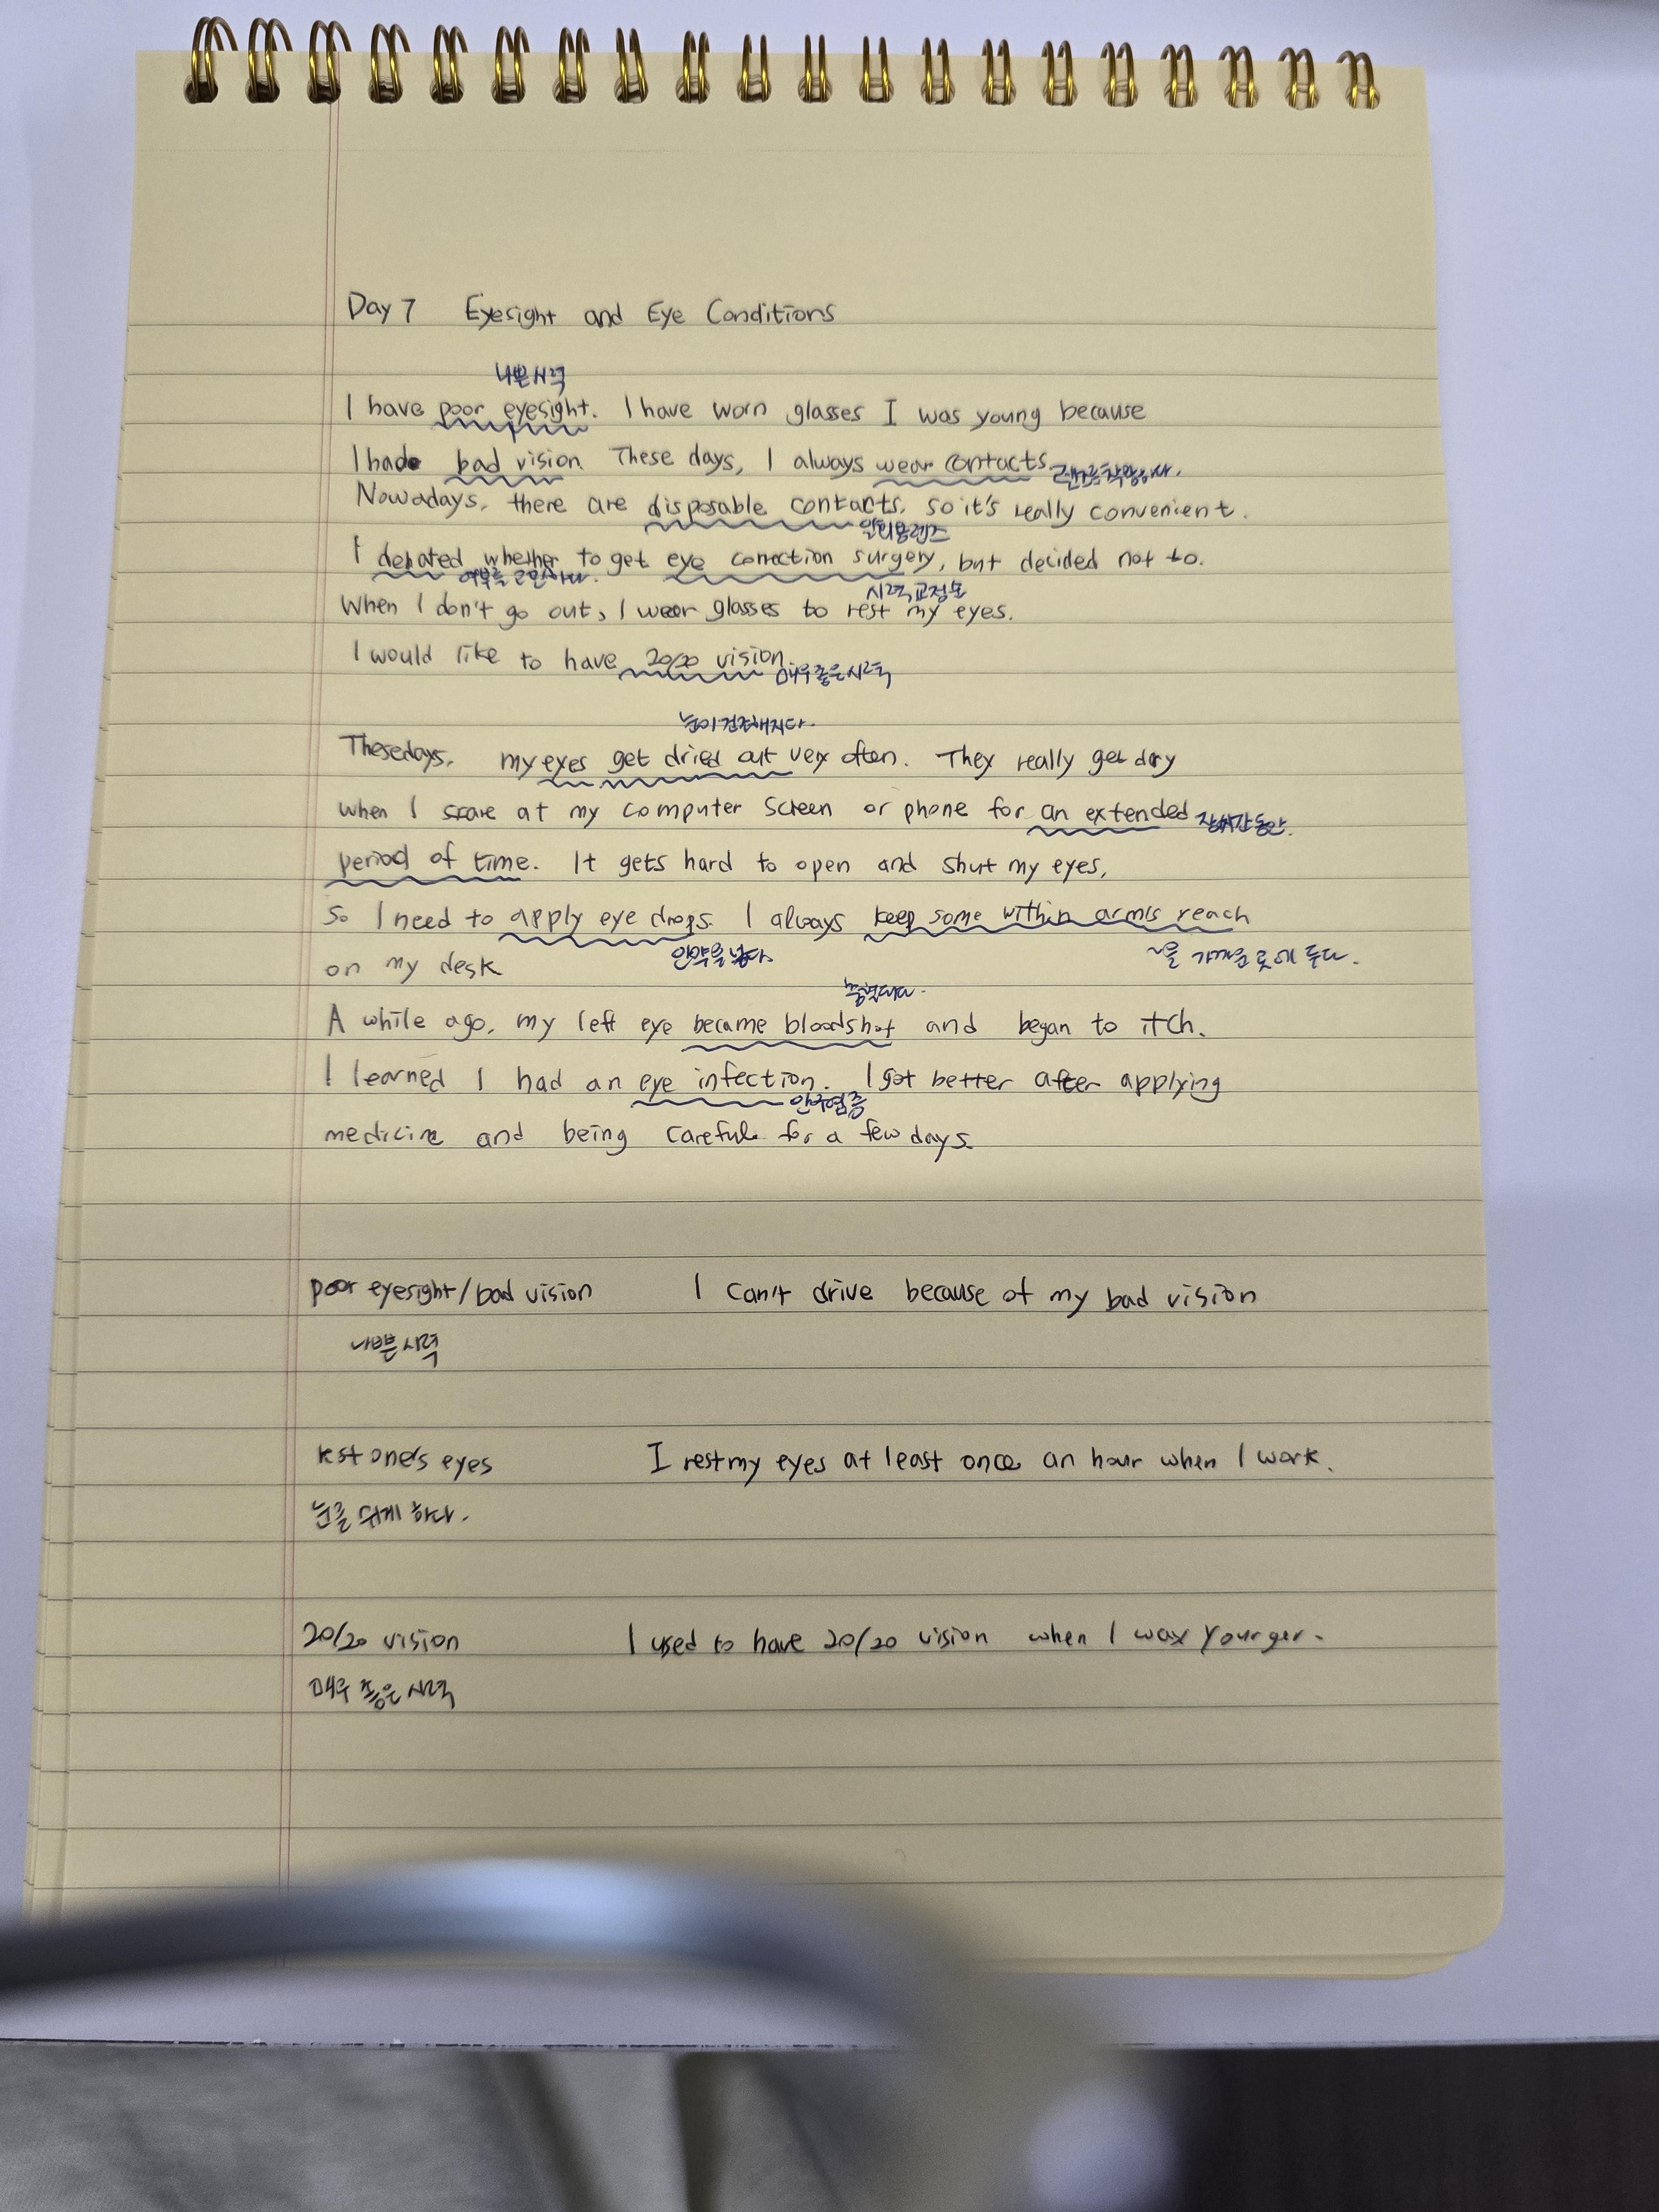 Day 7 Eyesight and Eye Conditions
나쁜시력
I have poor eyesight. I have worn glasses I was young because
I had bad vision. These days, I always wear contacts. 렌즈를 착용하다.
Nowadays, there are disposable contacts, so it's really convenient.
일회용렌즈
I debated whether to get eye correction surgery, but decided not to.
여부를 고민하다. 시력교정술
When I don't go out, I wear glasses to rest my eyes.
I would like to have 20/20 vision.
매우좋은시력
눈이건조해지다.
Thesedays, my eyes get dried out very often. They really get dry
when I stare at my computer screen or phone for an extended 장시간동안.
period of time. It gets hard to open and shut my eyes,
So I need to apply eye drops. I always keep some within arm's reach
안약을 넣다. ~을 가까운 곳에 두다.
on my desk
충혈되다.
A while ago, my left eye became bloodshot and began to itch.
I learned I had an eye infection. I got better after applying
안구염증
medicine and being careful for a few days.
poor eyesight/bad vision I can't drive because of my bad vision
나쁜시력
rest one's eyes I rest my eyes at least once an hour when I work.
눈을 쉬게 하다.
20/20 vision I used to have 20/20 vision when I was younger.
매우 좋은 시력